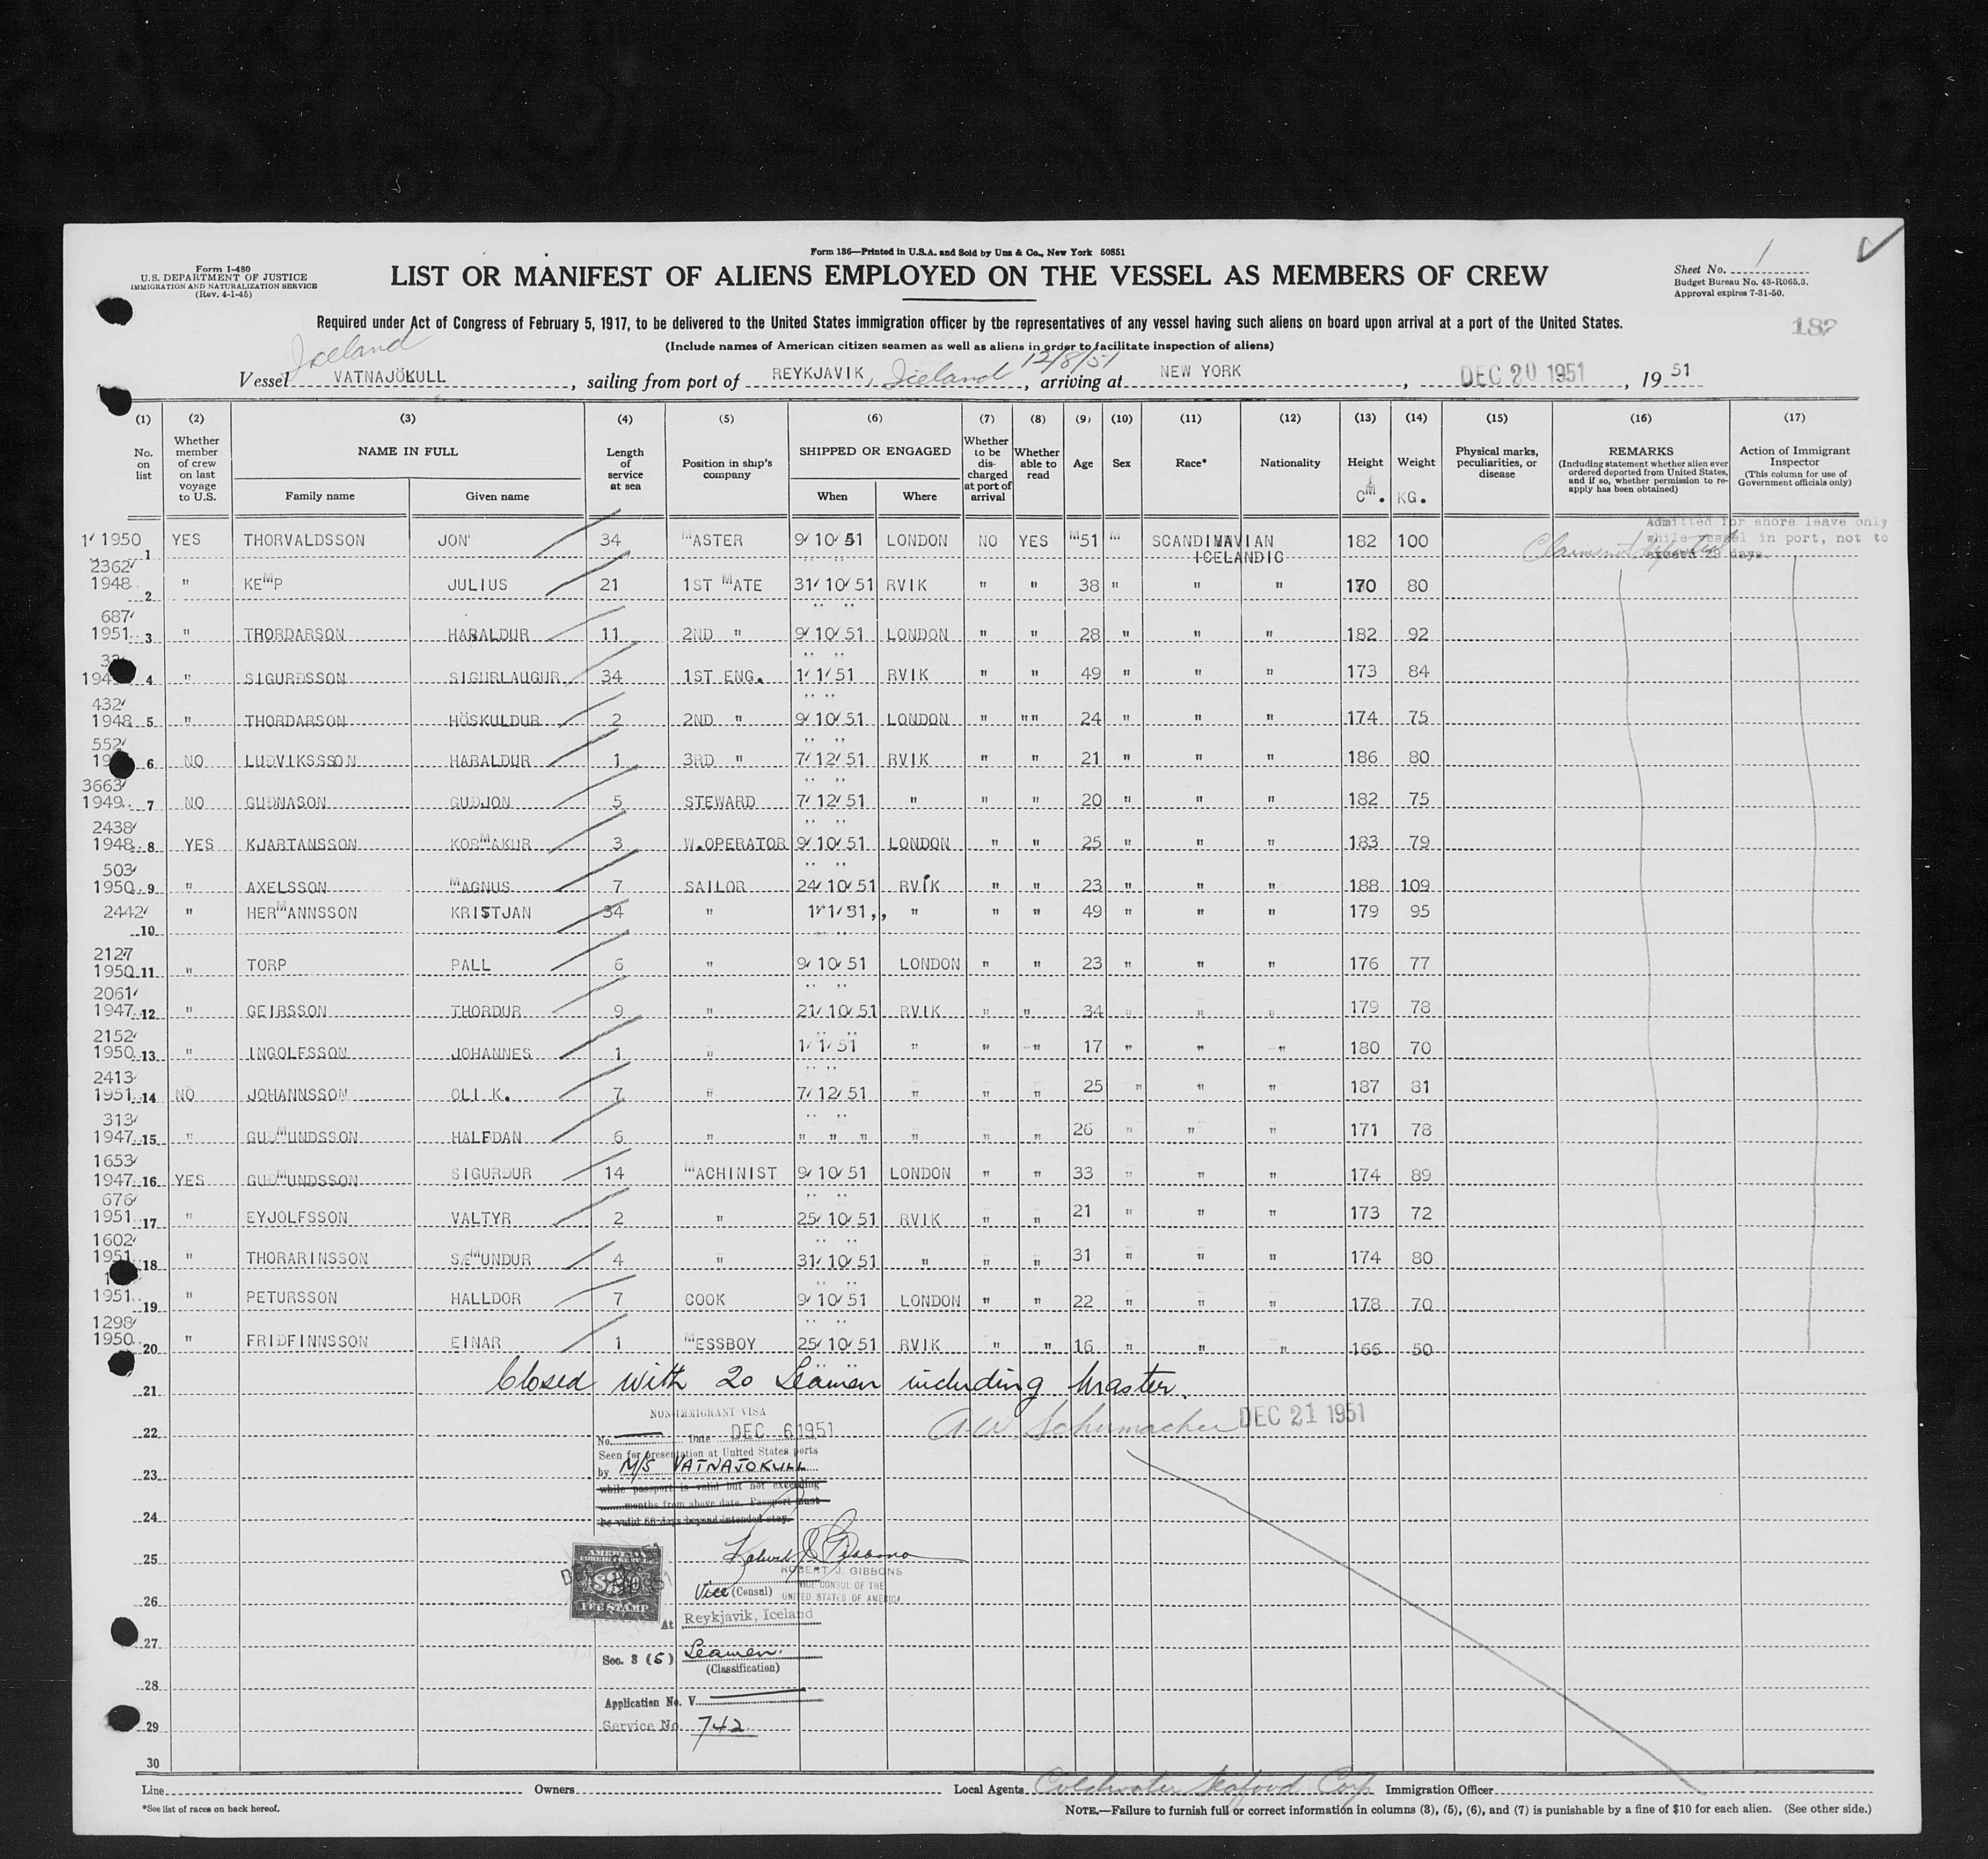 Form 136—Printed in U.S.A. and Sold by Unz & Co., New York 50851
Form I-480
U.S. DEPARTMENT OF JUSTICE
IMMIGRATION AND NATURALIZATION SERVICE
(Rev. 4-1-45)
LIST OR MANIFEST OF ALIENS EMPLOYED ON THE VESSEL AS MEMBERS OF CREW
Sheet No. 1
Budget Bureau No. 43-R065.3.
Approval expires 7-31-50.
Required under Act of Congress of February 5, 1917, to be delivered to the United States immigration officer by the representatives of any vessel having such aliens on board upon arrival at a port of the United States.
182
(Include names of American citizen seamen as well as aliens in order to facilitate inspection of aliens)
Iceland
12/8/51
Vessel VATNAJÖKULL, sailing from port of REYKJAVIK, Iceland, arriving at NEW YORK, DEC 20 1951, 19 51
(1) (2) (3) (4) (5) (6) (7) (8) (9) (10) (11) (12) (13) (14) (15) (16) (17)
No. on list
Whether member of crew on last voyage to U.S.
NAME IN FULL
Family name
Given name
Length of service at sea
Position in ship's company
SHIPPED OR ENGAGED
When
Where
Whether to be discharged at port of arrival
Whether able to read
Age
Sex
Race*
Nationality
Height CM.
Weight KG.
Physical marks, peculiarities, or disease
REMARKS
(Including statement whether alien ever ordered deported from United States, and if so, whether permission to reapply has been obtained)
Action of Immigrant Inspector
(This column for use of Government officials only)
Admitted for shore leave only
while vessel in port, not to
exceed 29 days.
1/ 1950 1 YES THORVALDSSON JON 34 MASTER 9/ 10/ 51 LONDON NO YES 51 M SCANDINAVIAN ICELANDIC 182 100
2362/ 1948 2 " KEMP JULIUS 21 1ST MATE 31/ 10/ 51 RVIK " " 38 " " " 170 80
687/ 1951 3 " THORDARSON HARALDUR 11 2ND " 9/ 10/ 51 LONDON " " 28 " " " 182 92
4 " SIGURDSSON SIGURLAUGUR 34 1ST ENG. 1/ 1/ 51 RVIK " " 49 " " " 173 84
432/ 1948 5 " THORDARSON HÖSKULDUR 2 2ND " 9/ 10/ 51 LONDON " "" 24 " " " 174 75
552/ 6 NO LUDVIKSSSON HARALDUR 1 3RD " 7/ 12/ 51 RVIK " " 21 " " " 186 80
3663/ 1949 7 NO GUDNASON GUDJON 5 STEWARD 7/ 12/ 51 " " " 20 " " " 182 75
2438/ 1948 8 YES KJARTANSSON KORMAKUR 3 W.OPERATOR 9/ 10/ 51 LONDON " " 25 " " " 183 79
503/ 1950 9 " AXELSSON MAGNUS 7 SAILOR 24/ 10/ 51 RVIK " " 23 " " " 188 109
2442/ 10 " HERMANNSSON KRISTJAN 34 " 1/ 1/ 51,, " " " 49 " " " 179 95
2127 1950 11 " TORP PALL 6 " 9/ 10/ 51 LONDON " " 23 " " " 176 77
2061/ 1947 12 " GEIRSSON THORDUR 9 " 21/ 10/ 51 RVIK " " 34 " " " 179 78
2152/ 1950 13 " INGOLFSSON JOHANNES 1 " 1/ 1/ 51 " " " 17 " " " 180 70
2413/ 1951 14 NO JOHANNSSON OLI K. 7 " 7/ 12/ 51 " " " 25 " " " 187 81
313/ 1947 15 " GUDMUNDSSON HALFDAN 6 " " " " " " " 26 " " " 171 78
1653/ 1947 16 YES GUDMUNDSSON SIGURDUR 14 MACHINIST 9/ 10/ 51 LONDON " " 33 " " " 174 89
676/ 1951 17 " EYJOLFSSON VALTYR 2 " 25/ 10/ 51 RVIK " " 21 " " " 173 72
1602/ 1951 18 " THORARINSSON SÆMUNDUR 4 " 31/ 10/ 51 " " " 31 " " " 174 80
1951 19 " PETURSSON HALLDOR 7 COOK 9/ 10/ 51 LONDON " " 22 " " " 178 70
1298/ 1950 20 " FRIDFINNSSON EINAR 1 MESSBOY 25/ 10/ 51 RVIK " " 16 " " " 166 50
21 Closed with 20 Seamen including Master.
NON-IMMIGRANT VISA
22 A.W. Schumacher DEC 21 1951
No. Date DEC 6 1951
Seen for presentation at United States ports
23 by M/S VATNAJOKULL
while passport is valid but not exceeding
months from above date. Passport must
24 be valid 60 days beyond intended stay.
25
AMERICAN
FOREIGN SERVICE
$2.00
FEE STAMP
ROBERT J. GIBBONS
Vice (Consul) VICE CONSUL OF THE
26 UNITED STATES OF AMERICA
At Reykjavik, Iceland
27
Sec. 3 (5) Seamen
(Classification)
28
Application No. V
29 Service No. 742
30
Line Owners Local Agents Coldwater Seafood Corp Immigration Officer
*See list of races on back hereof.
NOTE.—Failure to furnish full or correct information in columns (3), (5), (6), and (7) is punishable by a fine of $10 for each alien. (See other side.)